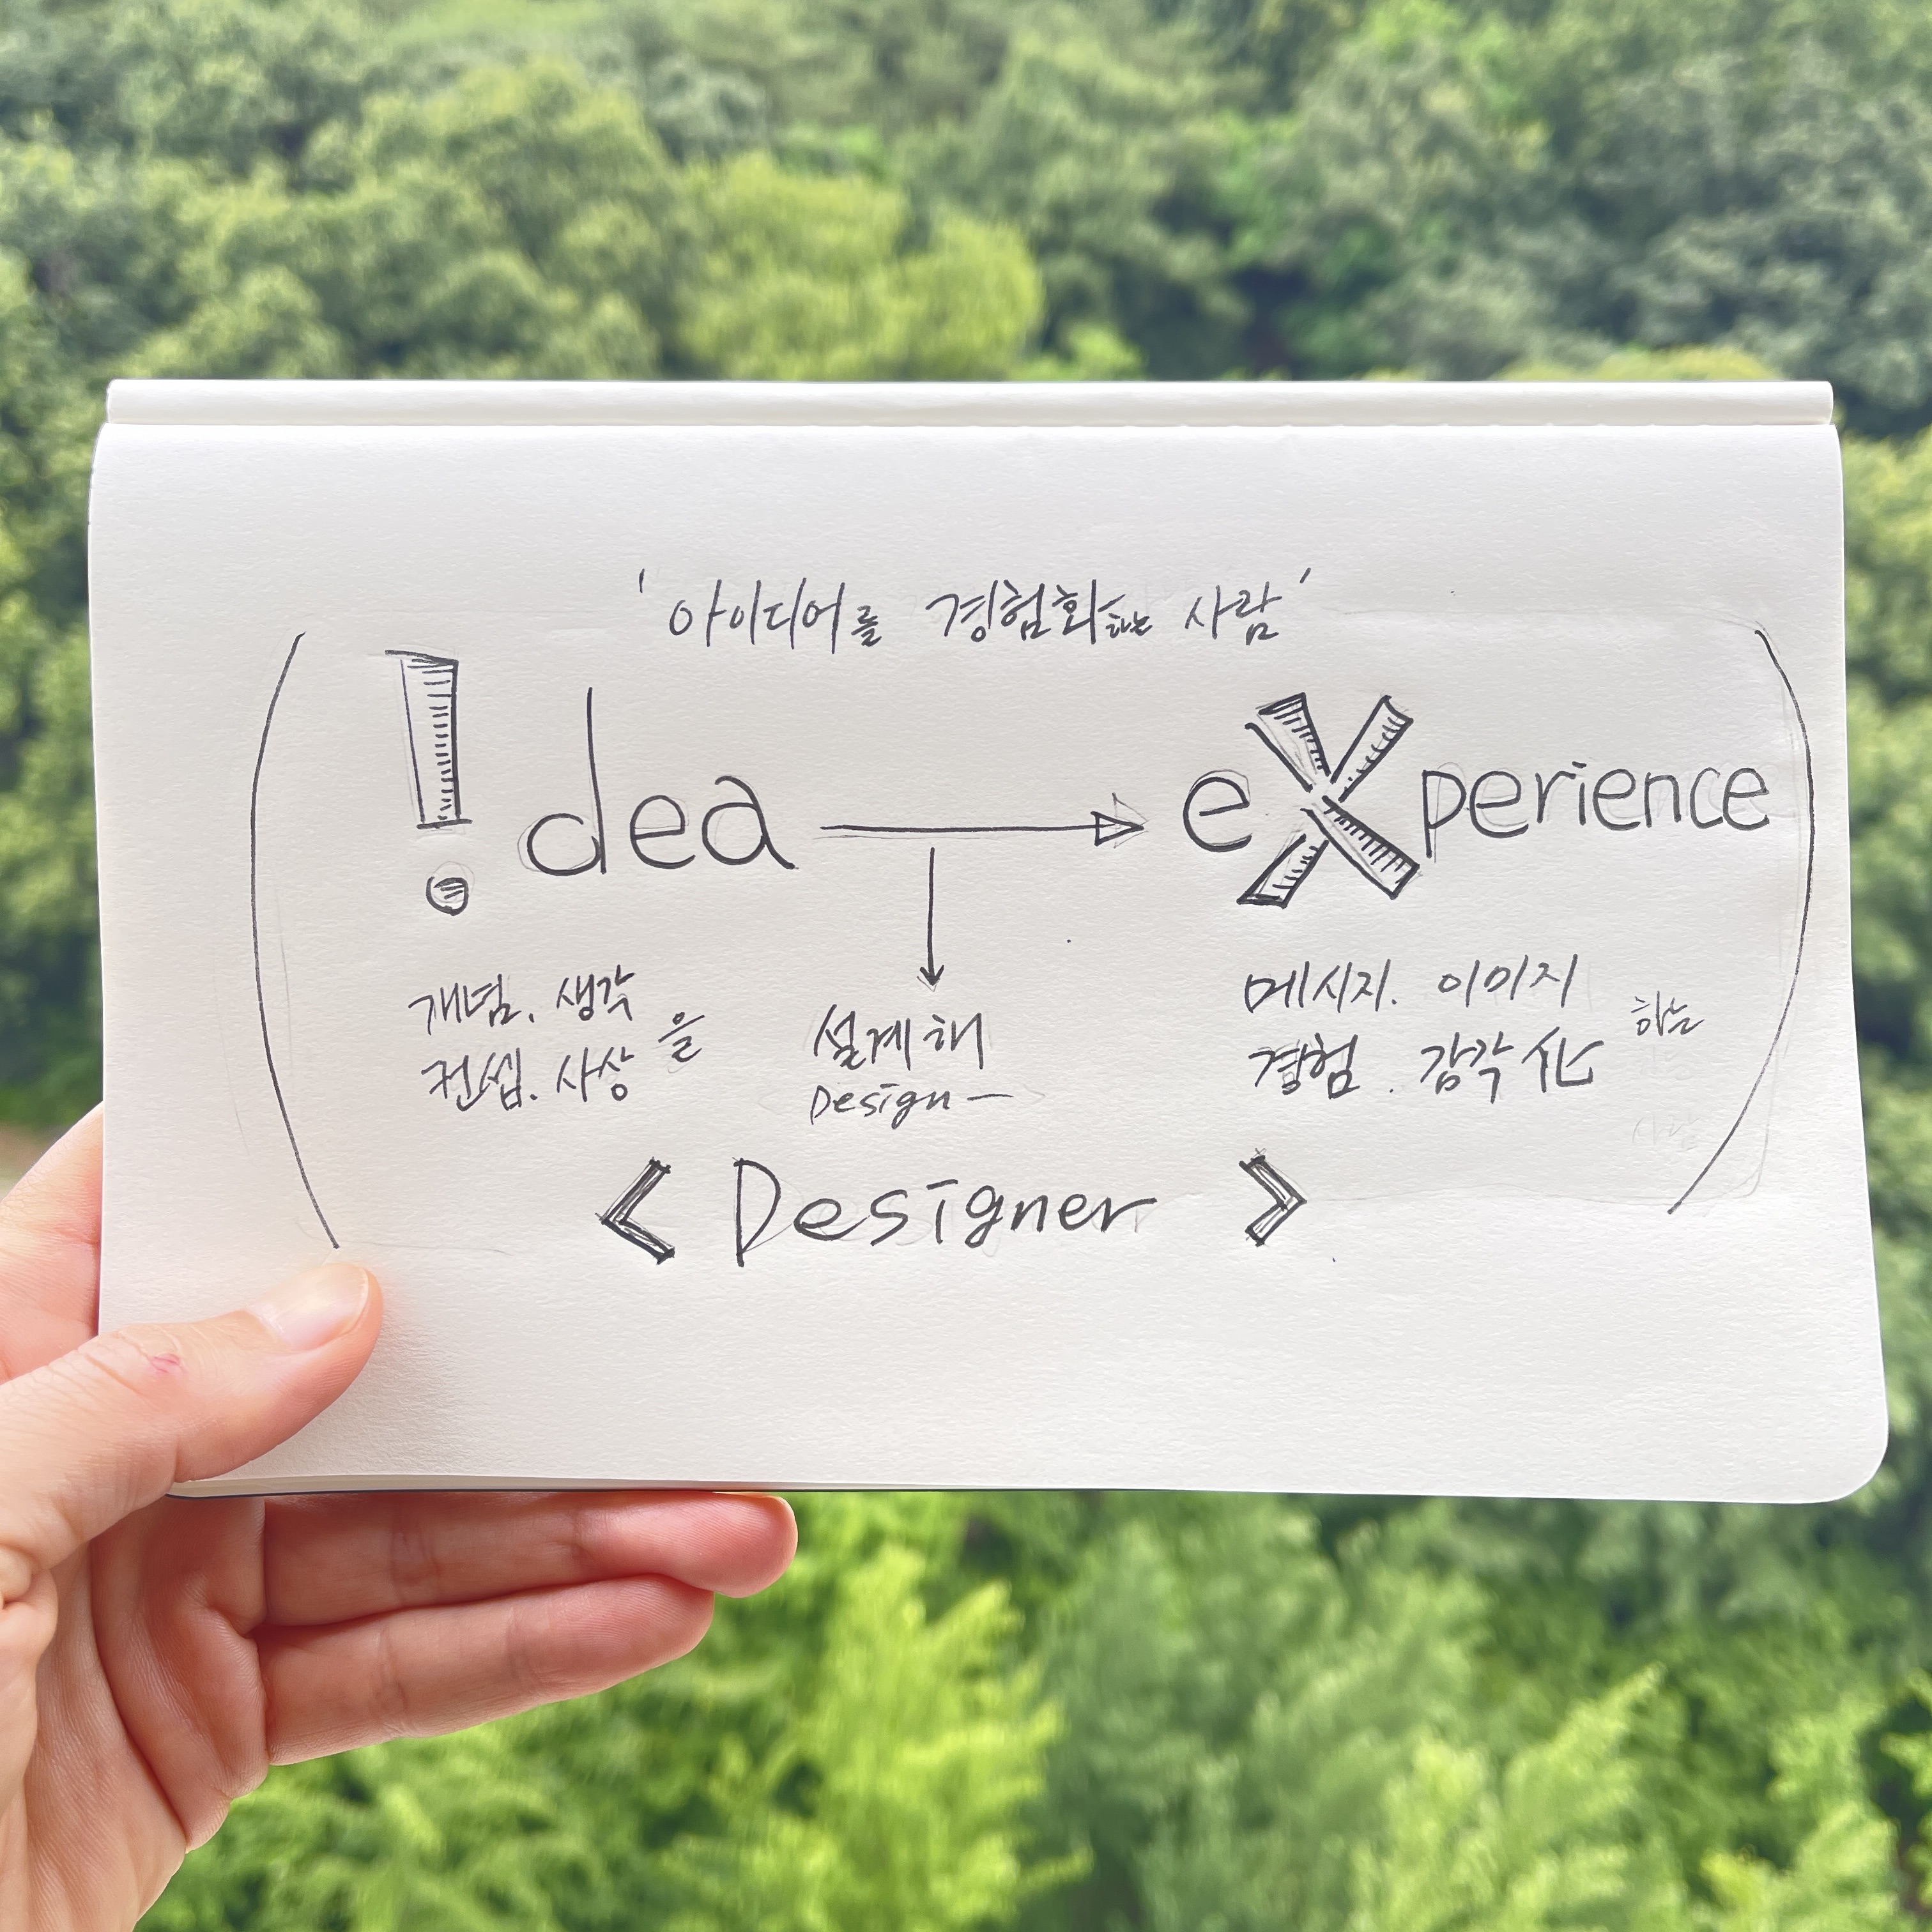 '아이디어를 경험화하는 사람'
!dea → eXperience
개념. 생각
컨셉. 사상 을
설계해
Design—
메시지. 이미지
경험. 감각化 하는
사람
< Designer >